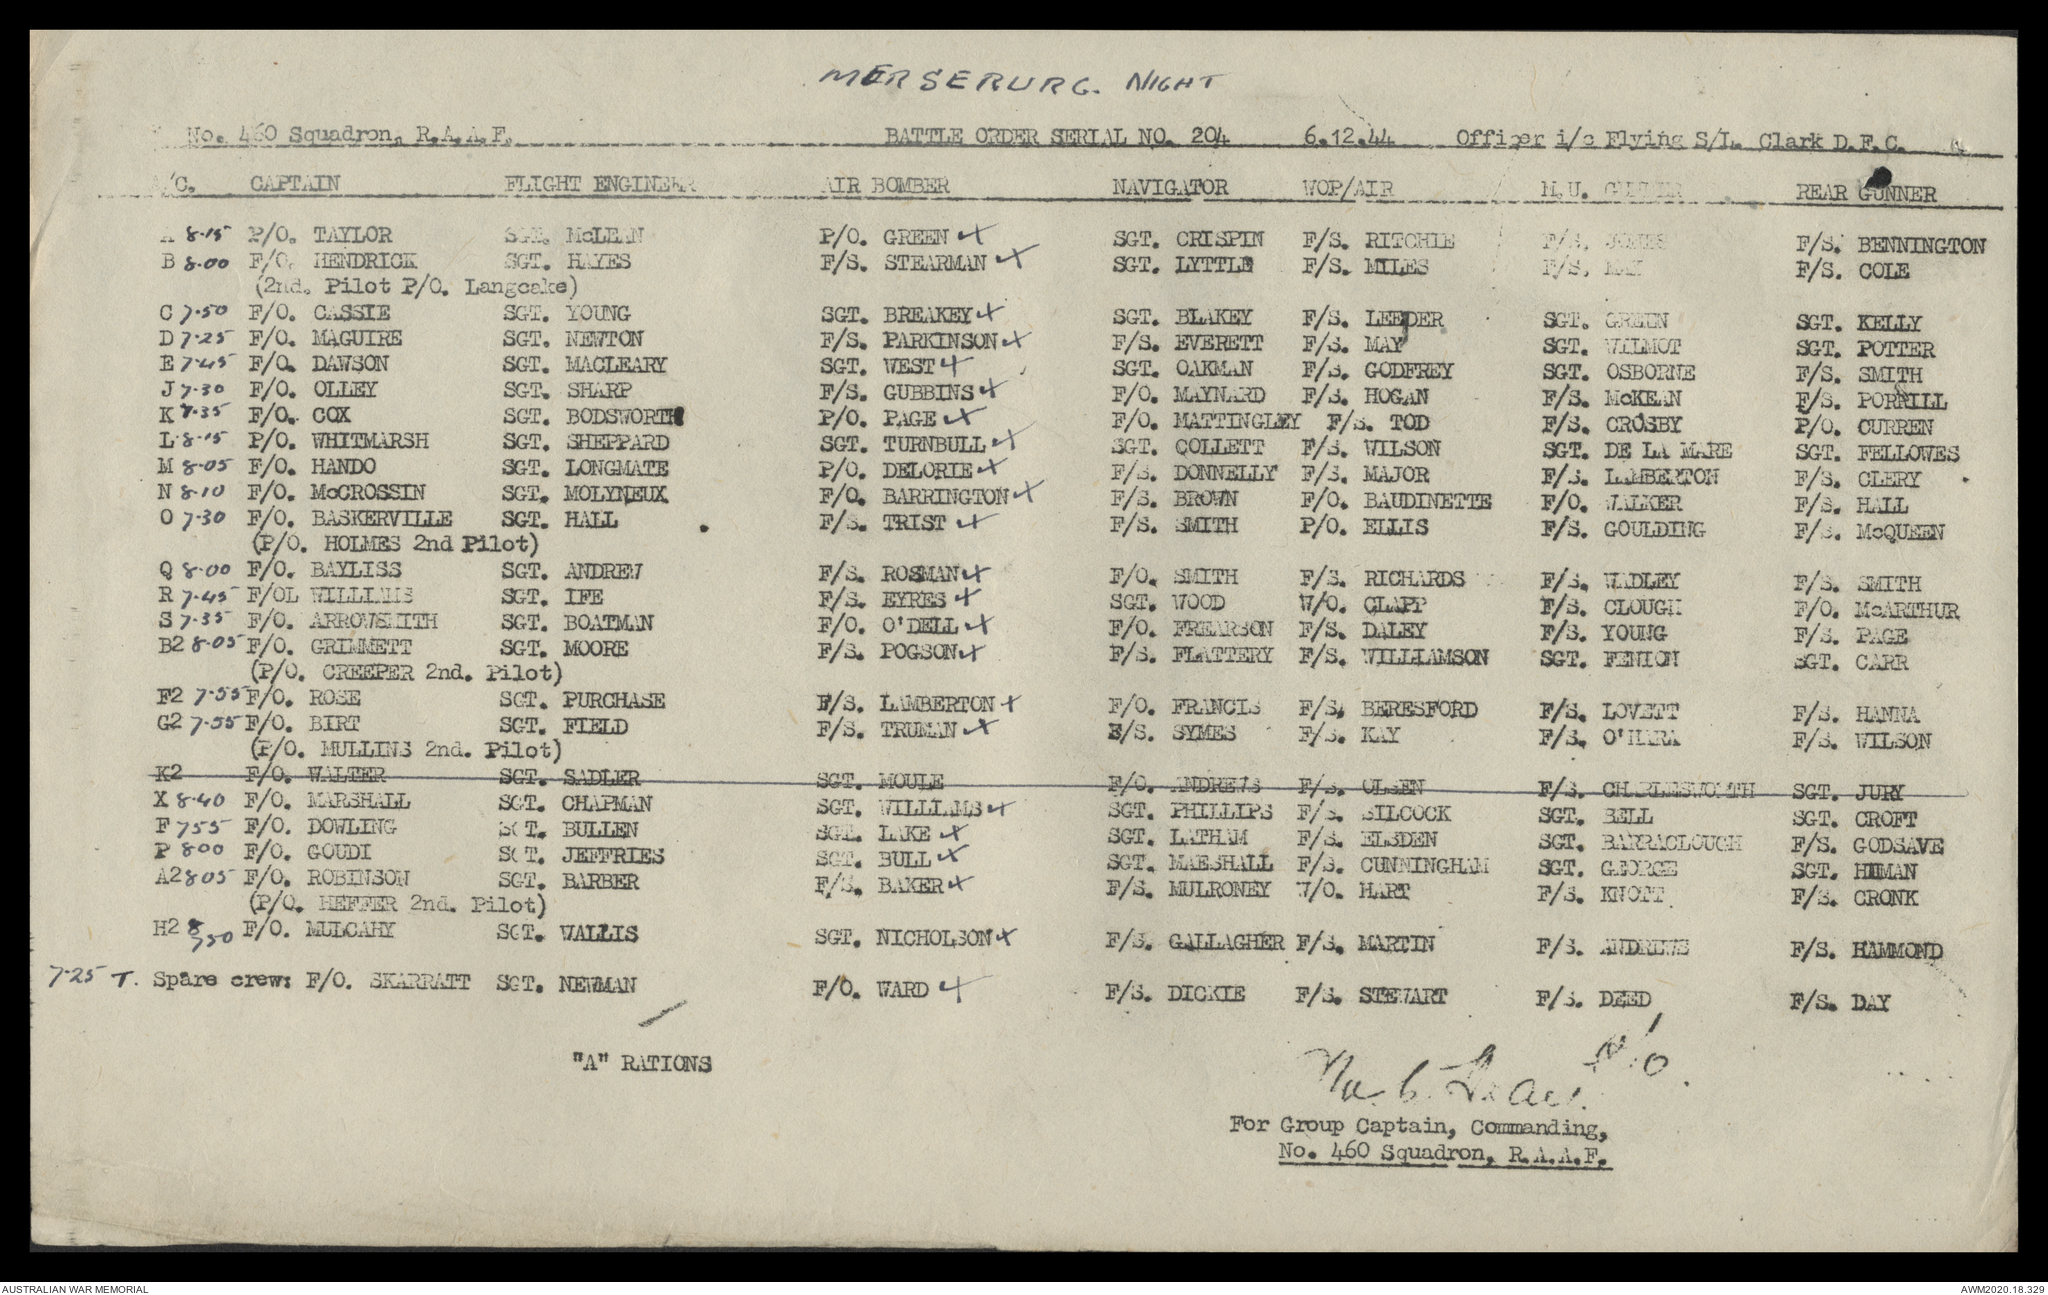 MERSEBURG. NIGHT
No. 460 Squadron, R.A.A.F. BATTLE ORDER SERIAL NO. 204 6.12.44 Officer i/c Flying S/L. Clark D.F.C.
A/C. CAPTAIN FLIGHT ENGINEER AIR BOMBER NAVIGATOR WOP/AIR M.U. GUNNER REAR GUNNER
A 8.15 P/O. TAYLOR SGT. McLEAN P/O. GREEN SGT. CRISPIN F/S. RITCHIE F/S. JONES F/S. BENNINGTON
B 8.00 F/O. HENDRICK SGT. HAYES F/S. STEARMAN SGT. LYTTLE F/S. MILES F/S. MAY F/S. COLE
(2nd. Pilot P/O. Langcake)
C 7.50 F/O. CASSIE SGT. YOUNG SGT. BREAKEY SGT. BLAKEY F/S. LEEDER SGT. GREEN SGT. KELLY
D 7.25 F/O. MAGUIRE SGT. NEWTON F/S. PARKINSON F/S. EVERETT F/S. MAY SGT. WILMOT SGT. POTTER
E 7.45 F/O. DAWSON SGT. MACLEARY SGT. WEST SGT. OAKMAN F/S. GODFREY SGT. OSBORNE F/S. SMITH
J 7.30 F/O. OLLEY SGT. SHARP F/S. GUBBINS F/O. MAYNARD F/S. HOGAN F/S. McKEAN F/S. PORRILL
K 7.35 F/O. COX SGT. BODSWORTH P/O. PAGE F/O. MATTINGLEY F/S. TOD F/S. CROSBY P/O. CURREN
L 8.15 P/O. WHITMARSH SGT. SHEPPARD SGT. TURNBULL SGT. COLLETT F/S. WILSON SGT. DE LA MARE SGT. FELLOWES
M 8.05 F/O. HANDO SGT. LONGMATE P/O. DELORIE F/S. DONNELLY F/S. MAJOR F/S. LAMBERTON F/S. CLERY
N 8.10 F/O. McCROSSIN SGT. MOLYNEUX F/O. BARRINGTON F/S. BROWN F/O. BAUDINETTE F/O. WALKER F/S. HALL
O 7.30 F/O. BASKERVILLE SGT. HALL F/S. TRIST F/S. SMITH P/O. ELLIS F/S. GOULDING F/S. McQUEEN
(P/O. HOLMES 2nd Pilot)
Q 8.00 F/O. BAYLISS SGT. ANDREW F/S. ROSMAN F/O. SMITH F/S. RICHARDS F/S. WADLEY F/S. SMITH
R 7.45 F/OL WILLIAMS SGT. IFE F/S. EYRES SGT. WOOD W/O. CLAPP F/S. CLOUGH F/O. McARTHUR
S 7.35 F/O. ARROWSMITH SGT. BOATMAN F/O. O'DELL F/O. FREARSON F/S. DALEY F/S. YOUNG F/S. PAGE
B2 8.05 F/O. GRIMMETT SGT. MOORE F/S. POGSON F/S. FLATTERY F/S. WILLIAMSON SGT. FENION SGT. CARR
(P/O. CREEPER 2nd. Pilot)
F2 7.55 F/O. ROSE SGT. PURCHASE F/S. LAMBERTON F/O. FRANCIS F/S. BERESFORD F/S. LOVETT F/S. HANNA
G2 7.55 F/O. BIRT SGT. FIELD F/S. TRUMAN F/S. SYMES F/S. KAY F/S. O'HARA F/S. WILSON
(P/O. MULLINS 2nd. Pilot)
K2 F/O. WALTER SGT. SADLER SGT. MOULE F/O. ANDREWS F/S. OLSEN F/S. CHARLESWORTH SGT. JURY
X 8.40 F/O. MARSHALL SGT. CHAPMAN SGT. WILLIAMS SGT. PHILLIPS F/S. SILCOCK SGT. BELL SGT. CROFT
F 755 F/O. DOWLING SGT. BULLEN SGT. LAKE SGT. LATHAM F/S. ELSDEN SGT. BARRACLOUGH F/S. GODSAVE
P 800 F/O. GOUDI SGT. JEFFRIES SGT. BULL SGT. MARSHALL F/S. CUNNINGHAM SGT. GEORGE SGT. HIMAN
A2 805 F/O. ROBINSON SGT. BARBER F/S. BAKER F/S. MULRONEY W/O. HART F/S. KNOTT F/S. CRONK
(P/O. HEFFER 2nd. Pilot)
H2 8 750 F/O. MULCAHY SGT. WALLIS SGT. NICHOLSON F/S. GALLAGHER F/S. MARTIN F/S. ANDREWS F/S. HAMMOND
7.25 T. Spare crew: F/O. SKARRATT SGT. NEWMAN F/O. WARD F/S. DICKIE F/S. STEWART F/S. DEED F/S. DAY
"A" RATIONS
For Group Captain, Commanding,
No. 460 Squadron, R.A.A.F.
AUSTRALIAN WAR MEMORIAL AWM2020.18.329